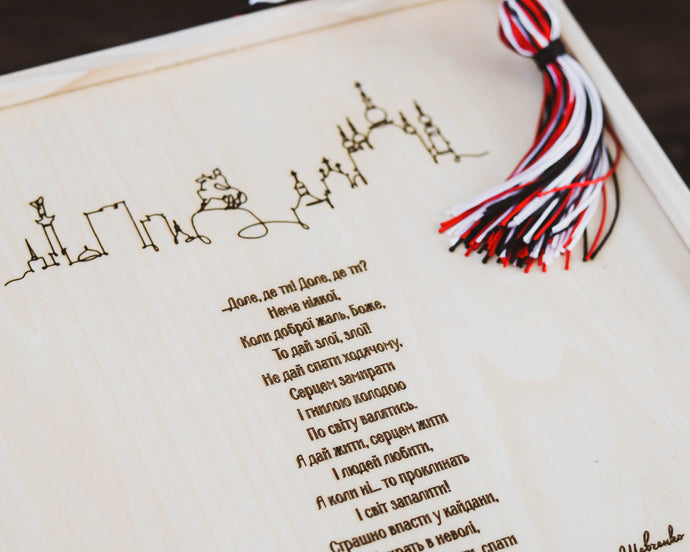 ...Доле, де ти! Доле, де ти?
Нема ніякої,
Коли доброї жаль, Боже,
То дай злої, злої!
Не дай спати ходячому,
Серцем замирати
І гнилою колодою
По світу валятись.
А дай жити, серцем жити
І людей любити,
А коли ні... то проклинать
І світ запалити!
Страшно впасти у кайдани,
в неволі,
спати
Шевченко